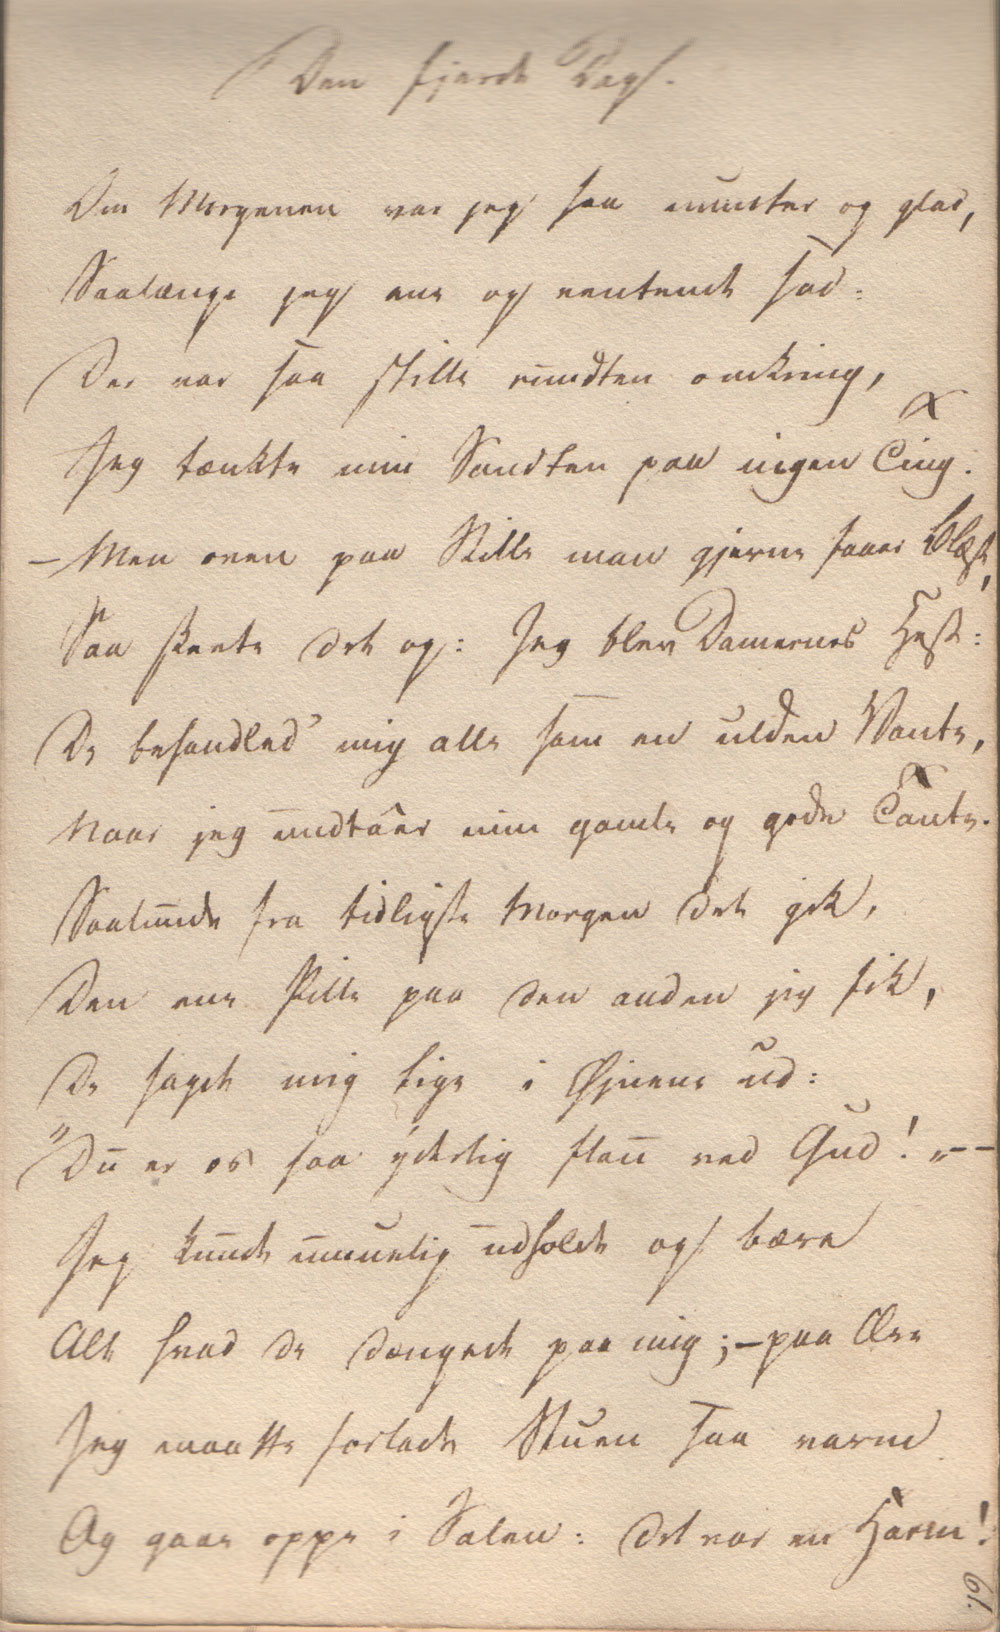 Den fjerde Dag.
Om Morgenen var jeg saa munter og glad,
Saalænge jeg ene og ventende sad:
Der var saa stille rundten omkring,
Jeg tænkte min Sandten paa ingen Ting.
– Men oven paa Stille man gjerne faaer Blæst,
Saa skeete det og: Jeg blev Damernes Hest:
De behandled' mig alle som en ulden Vante,
Naar jeg undtâer min gamle og gode Tante.
Saalunde fra tidligste Morgen det gik,
Den ene Pille paa den anden jeg fik,
De sagde mig lige i Øjnene ud:
"Du er os saa yderlig flau ved Gud! „ – –
Jeg kunde umuelig udholde og bære
Alt hvad de dængede paa mig; – paa Ære
Jeg maatte forlade Stuen saa varm
Og gaae oppe i Salen: det var en Harm!
61.